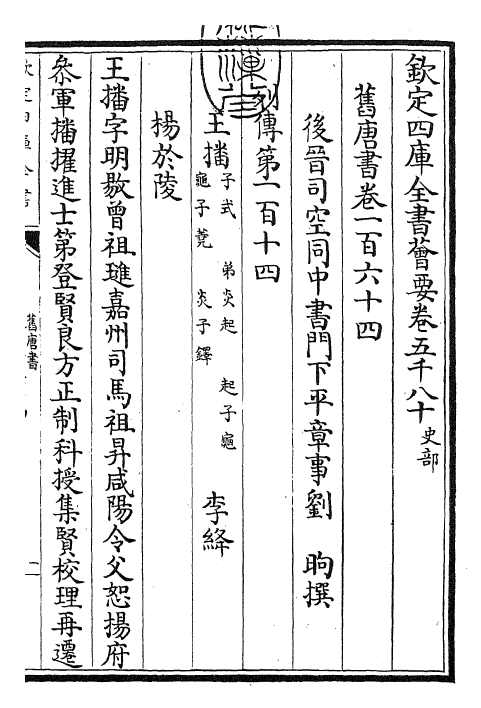 欽定四庫全書薈要卷五千八十 史部
舊唐書卷一百六十四
後晉司空同中書門下平章事劉 昫撰
列傳第一百十四
王播 子式 弟炎起 起子龜 龜子蕘 炎子鐸 李絳
楊於陵
王播字明敭曾祖璡嘉州司馬祖昇咸陽令父恕揚府
叅軍播擢進士第登賢良方正制科授集賢校理再遷
舊唐書